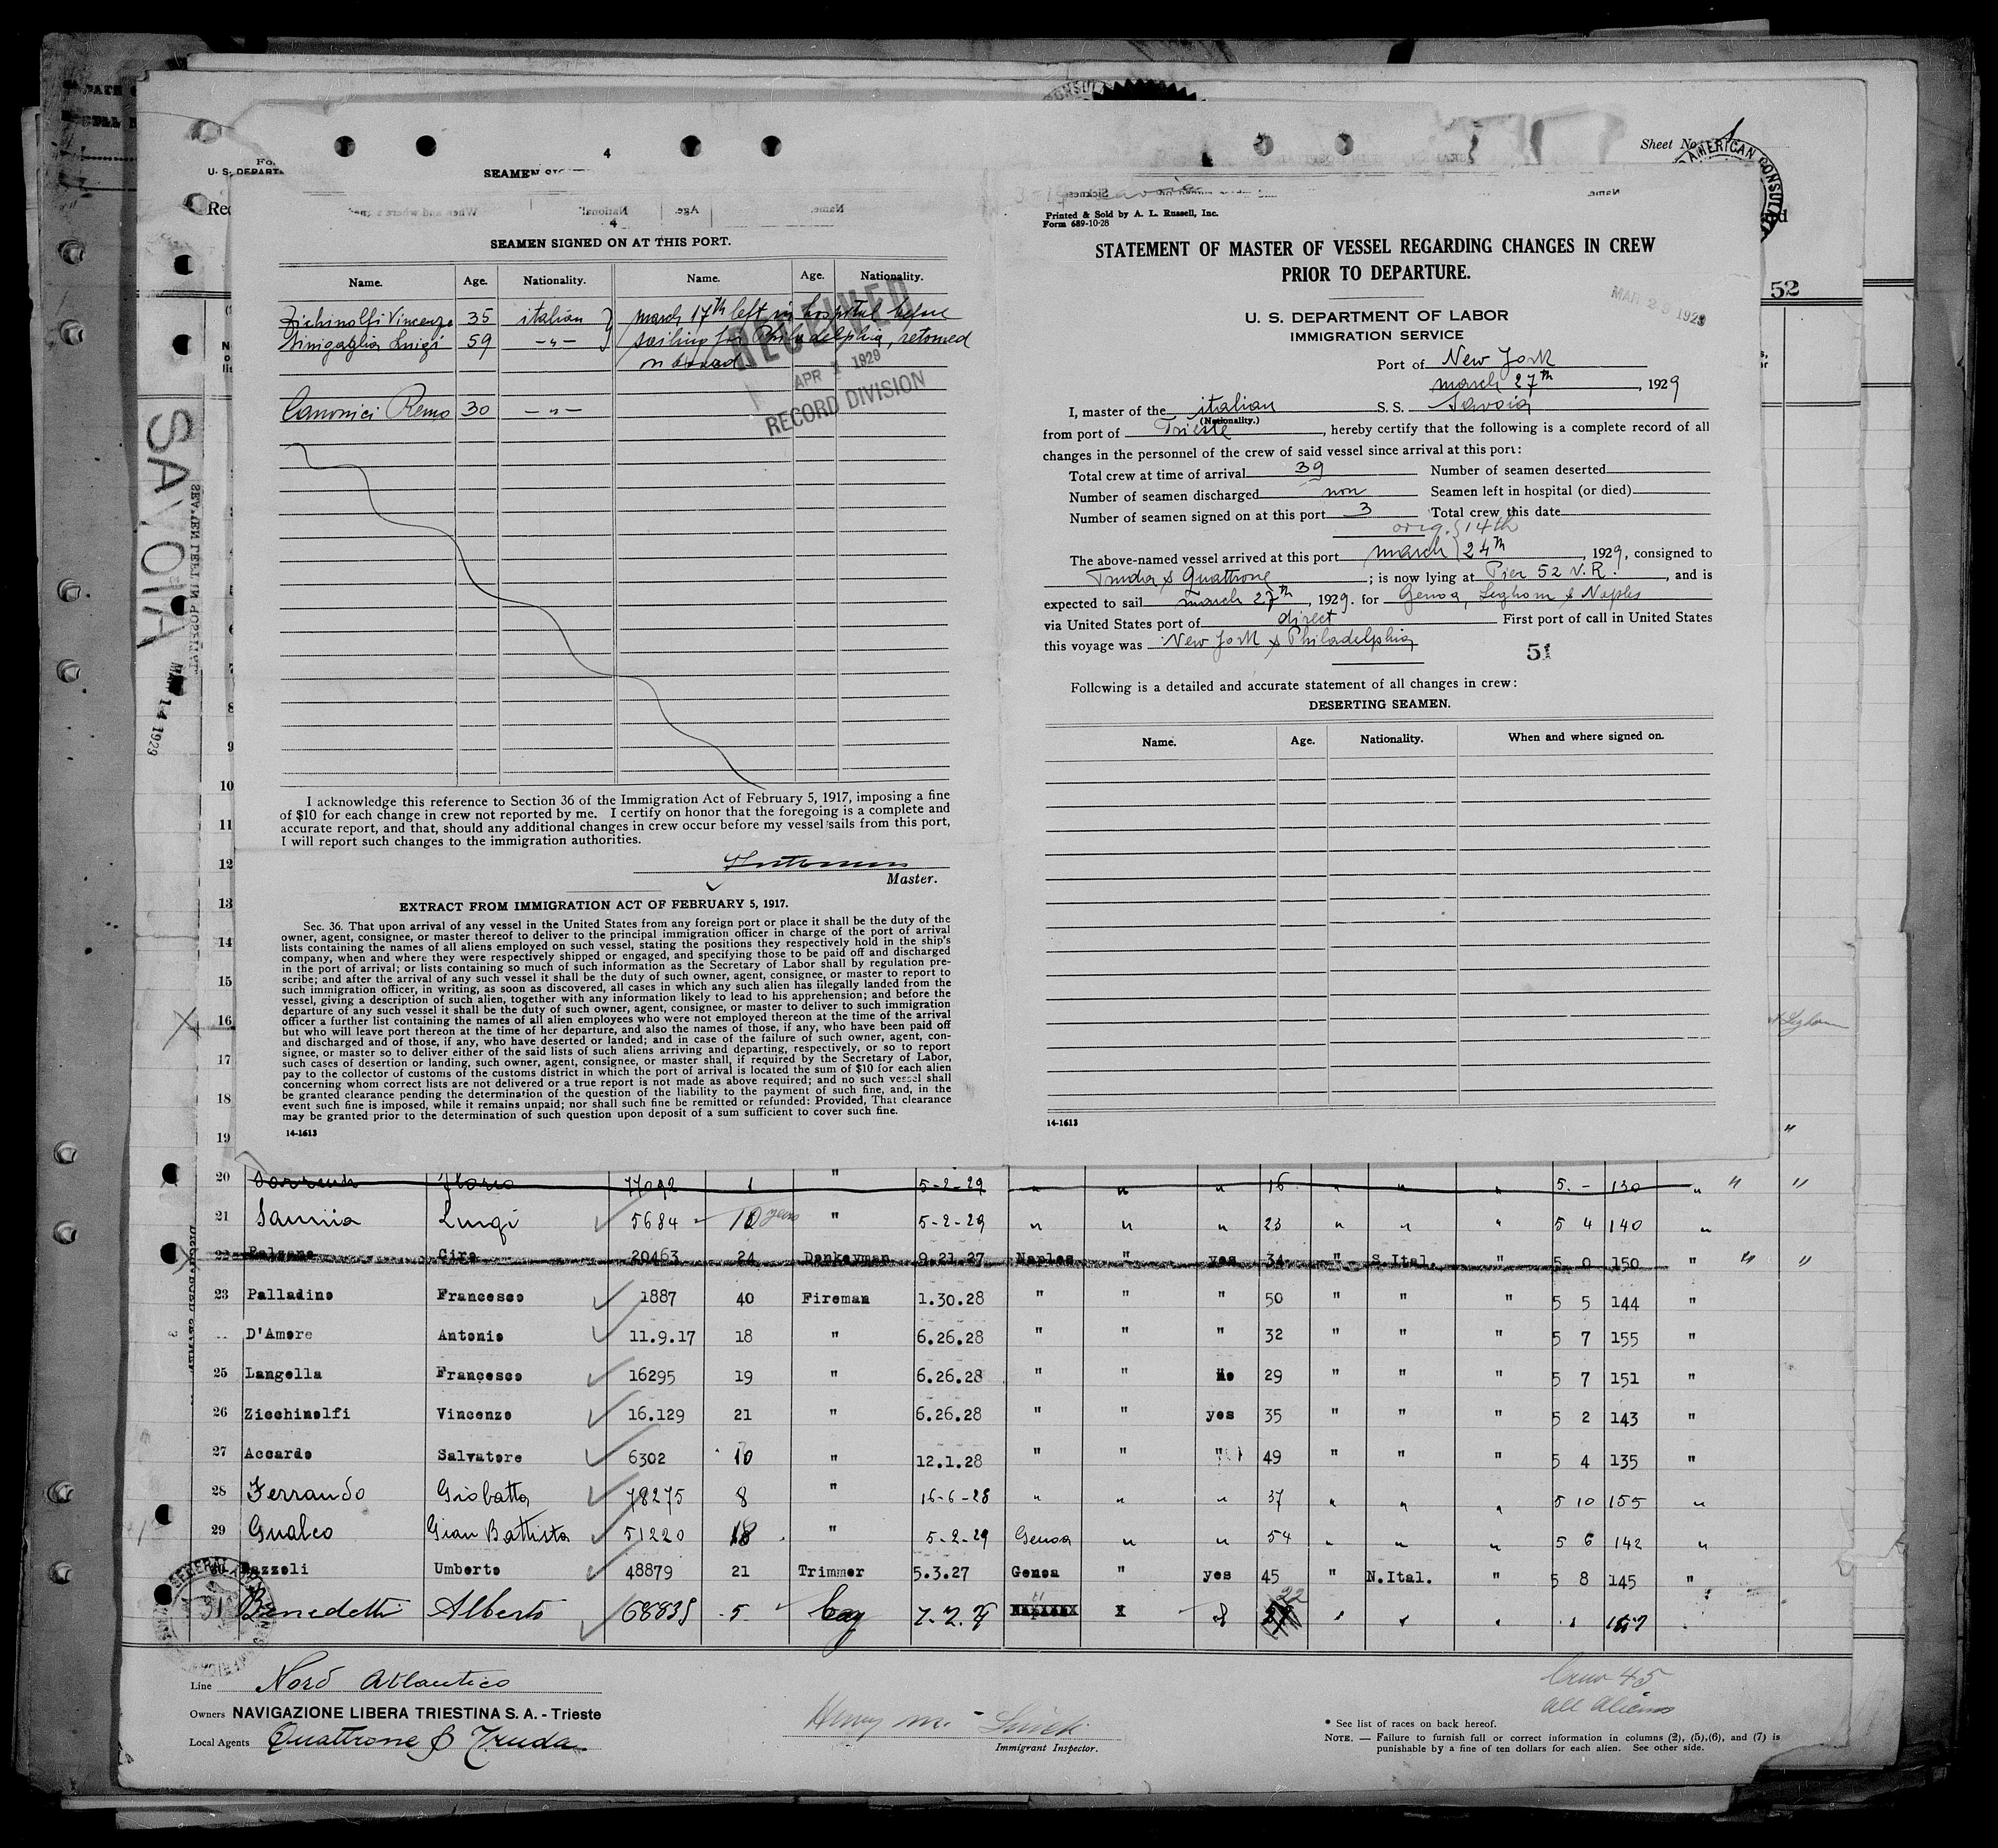 4
SEAMEN
Sheet No. 1
U. S. DEPART
AMERICAN CONSULA
52
4
SEAMEN SIGNED ON AT THIS PORT.
Name. Age. Nationality. Name. Age. Nationality.
Zichinolfi Vincenzo 35 italian march 17th left in hospital before
Sinigaglia Luigi 59 -"- sailing for Philadelphia, retorned
on board
Canonici Remo 30 -"-
RECEIVED
APR 1 1929
RECORD DIVISION
I acknowledge this reference to Section 36 of the Immigration Act of February 5, 1917, imposing a fine
of $10 for each change in crew not reported by me. I certify on honor that the foregoing is a complete and
accurate report, and that, should any additional changes in crew occur before my vessel sails from this port,
I will report such changes to the immigration authorities.
Master.
EXTRACT FROM IMMIGRATION ACT OF FEBRUARY 5, 1917.
Sec. 36. That upon arrival of any vessel in the United States from any foreign port or place it shall be the duty of the
owner, agent, consignee, or master thereof to deliver to the principal immigration officer in charge of the port of arrival
lists containing the names of all aliens employed on such vessel, stating the positions they respectively hold in the ship's
company, when and where they were respectively shipped or engaged, and specifying those to be paid off and discharged
in the port of arrival; or lists containing so much of such information as the Secretary of Labor shall by regulation pre-
scribe; and after the arrival of any such vessel it shall be the duty of such owner, agent, consignee, or master to report to
such immigration officer, in writing, as soon as discovered, all cases in which any such alien has illegally landed from the
vessel, giving a description of such alien, together with any information likely to lead to his apprehension; and before the
departure of any such vessel it shall be the duty of such owner, agent, consignee, or master to deliver to such immigration
officer a further list containing the names of all alien employees who were not employed thereon at the time of the arrival
but who will leave port thereon at the time of her departure, and also the names of those, if any, who have been paid off
and discharged and of those, if any, who have deserted or landed; and in case of the failure of such owner, agent, con-
signee, or master so to deliver either of the said lists of such aliens arriving and departing, respectively, or so to report
such cases of desertion or landing, such owner, agent, consignee, or master shall, if required by the Secretary of Labor,
pay to the collector of customs of the customs district in which the port of arrival is located the sum of $10 for each alien
concerning whom correct lists are not delivered or a true report is not made as above required; and no such vessel shall
be granted clearance pending the determination of the question of the liability to the payment of such fine, and, in the
event such fine is imposed, while it remains unpaid; nor shall such fine be remitted or refunded: Provided, That clearance
may be granted prior to the determination of such question upon deposit of a sum sufficient to cover such fine.
14-1613
Printed & Sold by A. L. Russell, Inc.
Form 689-10-28
STATEMENT OF MASTER OF VESSEL REGARDING CHANGES IN CREW
PRIOR TO DEPARTURE.
MAR 29 1929
U. S. DEPARTMENT OF LABOR
IMMIGRATION SERVICE
Port of New York
march 27th, 1929
I, master of the italian S. S. Savoia
(Nationality.)
from port of Trieste, hereby certify that the following is a complete record of all
changes in the personnel of the crew of said vessel since arrival at this port:
Total crew at time of arrival 39 Number of seamen deserted
Number of seamen discharged non Seamen left in hospital (or died)
Number of seamen signed on at this port 3 Total crew this date
orig. 14th
The above-named vessel arrived at this port march 24th, 1929, consigned to
Truda & Quattrone; is now lying at Pier 52 N.R., and is
expected to sail march 27th, 1929. for Genoa, Leghorn & Naples
via United States port of direct First port of call in United States
this voyage was New York & Philadelphia
51
Following is a detailed and accurate statement of all changes in crew:
DESERTING SEAMEN.
Name. Age. Nationality. When and where signed on.
14-1613
SAVOIA
MAR 14 1929
SEAMEN LEFT IN HOSPITAL
10
11
12
13
14
15
16
17
18
19 "
20 77092 1 " 5-2-29 " " " 16 " " " 5. - 130 " " "
21 Sannia Luigi 5684 10 years " 5-2-29 " " " 23 " " " 5 4 140 "
22 Balzano Ciro 20463 24 Donkeyman 9.21.27 Naples " yes 34 " S.Ital. " 5 0 150 " " "
23 Palladino Francesco 1887 40 Fireman 1.30.28 " " " 50 " " " 5 5 144 "
D'Amore Antonio 11.9.17 18 " 6.26.28 " " " 32 " " " 5 7 155 "
25 Langella Francesco 16295 19 " 6.26.28 " " No 29 " " " 5 7 151 "
26 Zicchinolfi Vincenzo 16.129 21 " 6.26.28 " " yes 35 " " " 5 2 143 "
27 Accardo Salvatore 6302 10 " 12.1.28 " " " 49 " " " 5 4 135 "
28 Ferrando Giobatta 78275 8 " 16-6-28 " " " 37 " " " 5 10 155 "
29 Gualco Gian Battista 51220 18 " 5-2-29 Genoa " " 54 " " " 5 6 142 "
Bazzoli Umberto 48879 21 Trimmer 5.3.27 Genoa " yes 45 " N.Ital. " 5 8 145 "
31 Benedetti Alberto 68835 5 boy 22
Line Nord Atlantico
Owners NAVIGAZIONE LIBERA TRIESTINA S. A. - Trieste
Local Agents Quattrone & Truda
Henry M.
Immigrant Inspector.
Crew 45
all aliens
* See list of races on back hereof.
NOTE. — Failure to furnish full or correct information in columns (2), (5),(6), and (7) is
punishable by a fine of ten dollars for each alien. See other side.